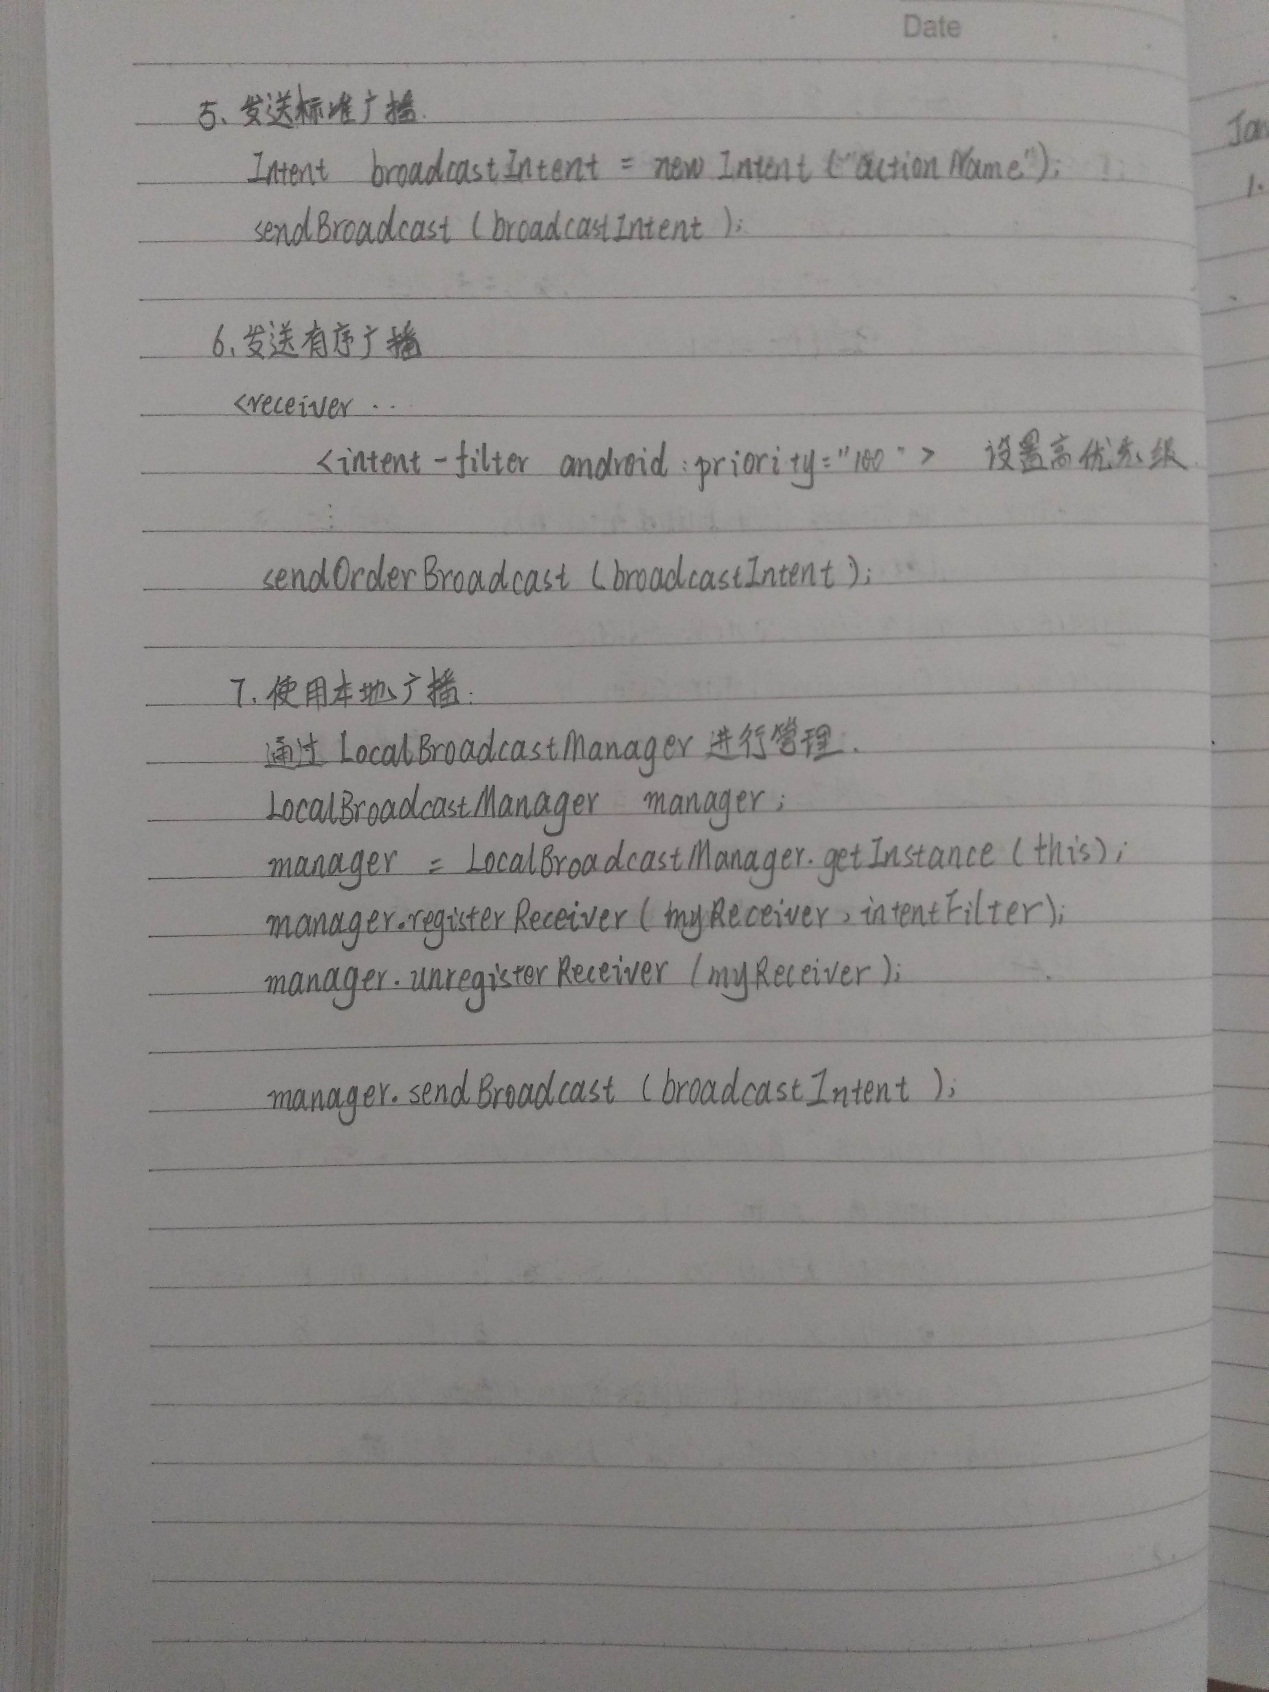 Date
5、发送标准广播.
Intent broadcastIntent = new Intent ("action Name");
sendBroadcast (broadcastIntent );
6、发送有序广播
<receiver ..
<intent-filter android:priority="100"> 设置高优先级
⋮
sendOrderBroadcast (broadcastIntent );
7. 使用本地广播:
通过 LocalBroadcastManager 进行管理.
LocalBroadcastManager manager;
manager = LocalBroadcastManager.getInstance (this);
manager.registerReceiver ( myReceiver, intentFilter);
manager.unregisterReceiver (myReceiver );
manager.sendBroadcast (broadcastIntent );
1.